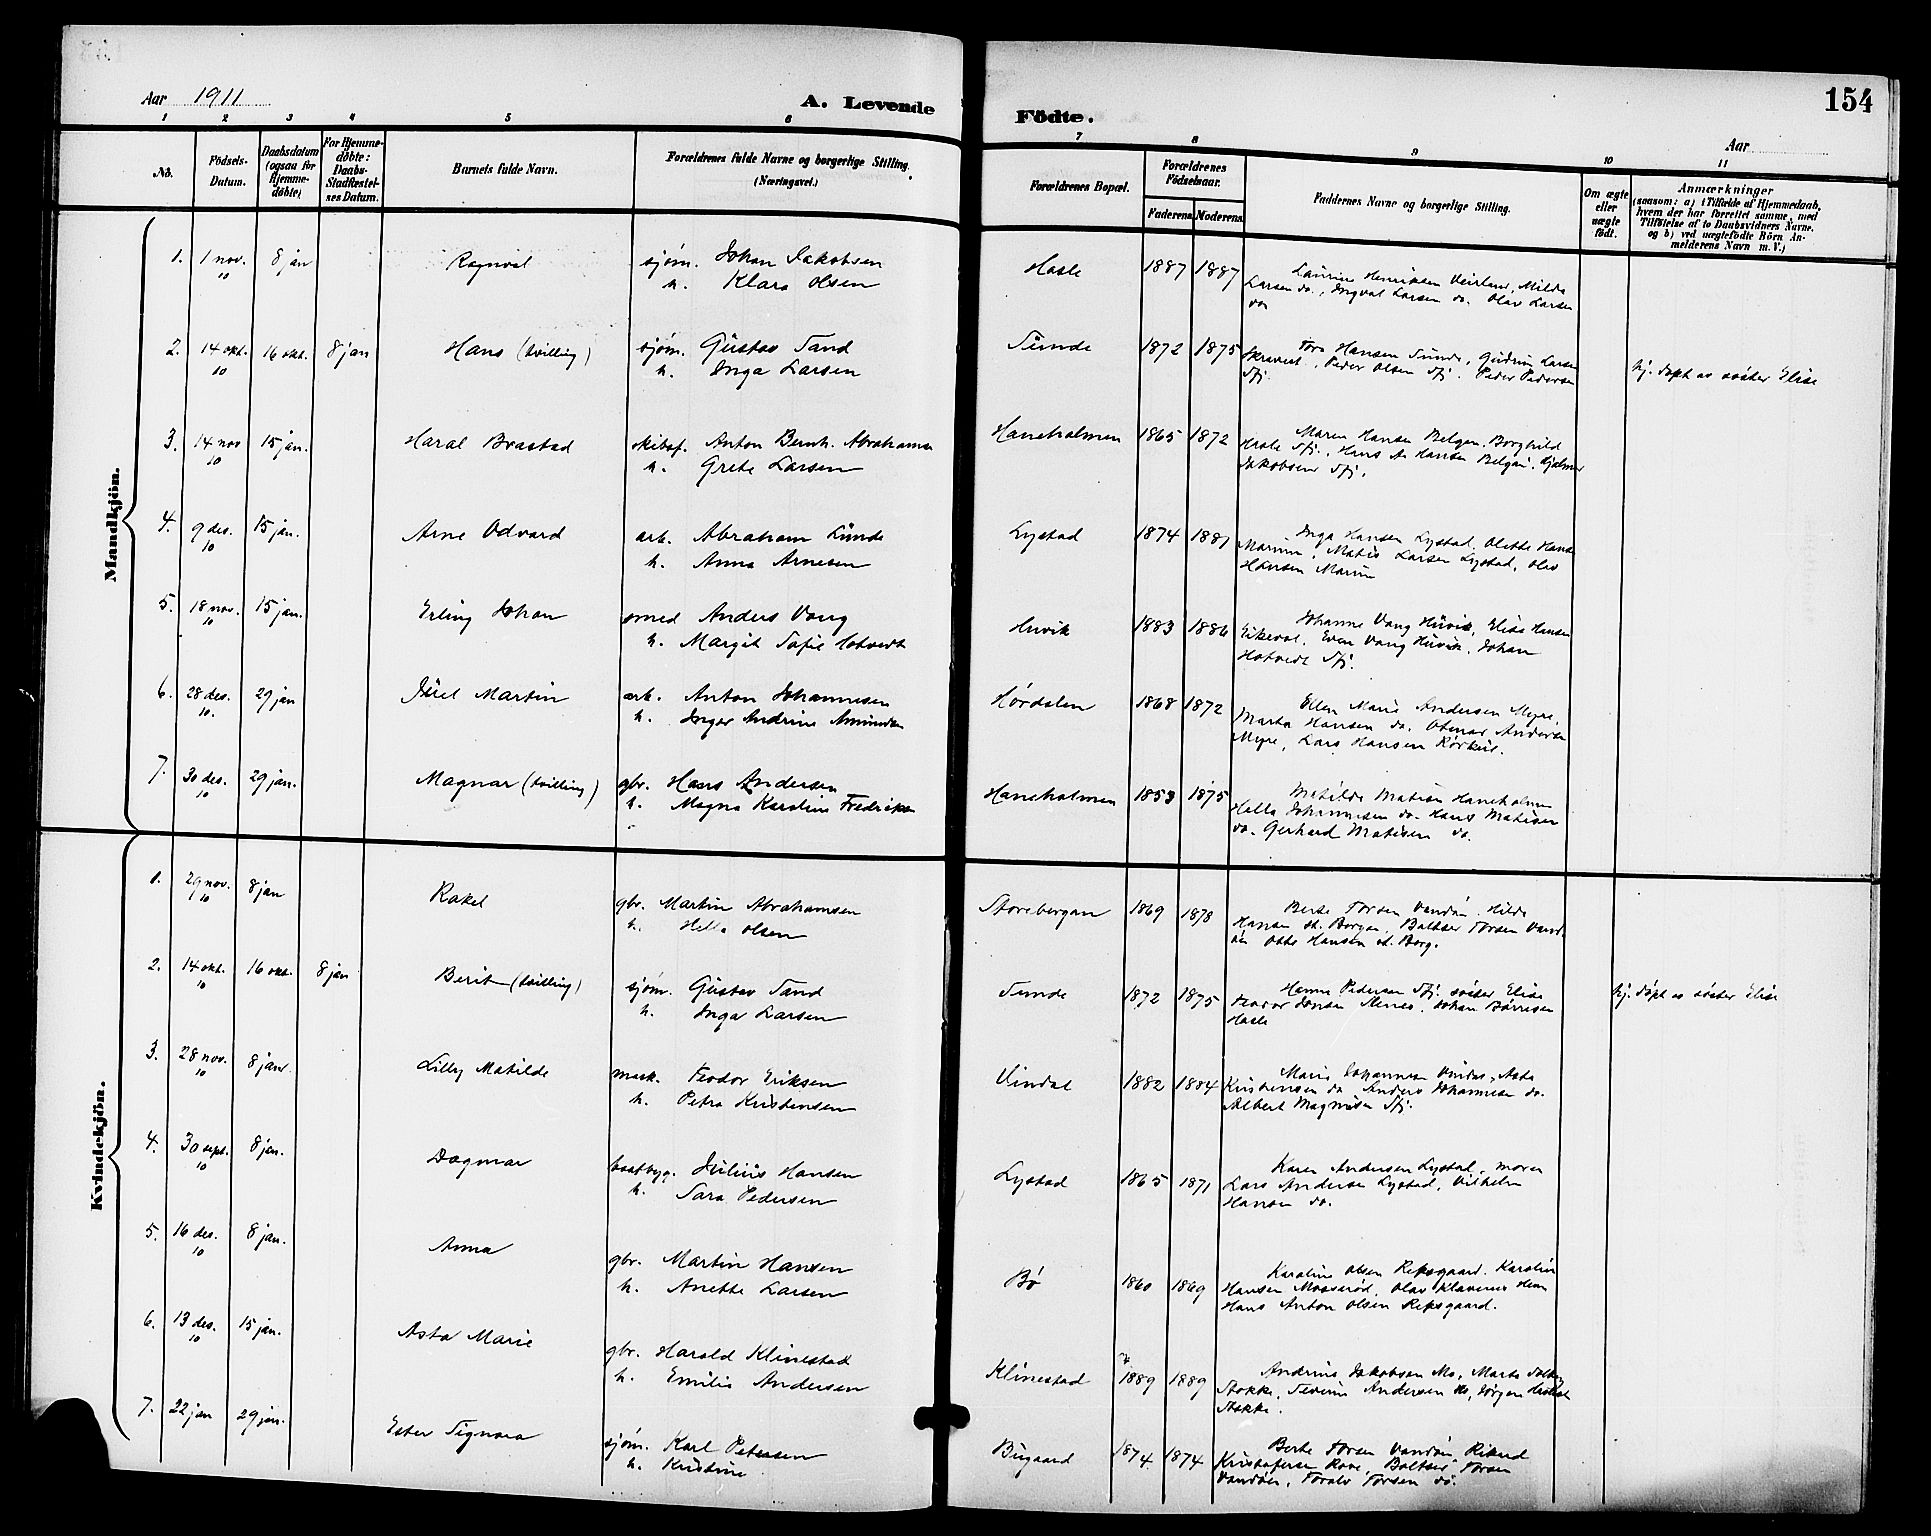 Aar 1911
A. Levende
Födte.
154
Aar
1 2 3 4 5 6 7 8 9 10 11
No.
Födsels-Datum.
Daabsdatum (ogsaa for Hjemme-döbte).
For Hjemme-döbte: Daabs-Stadfæstel-ses Datum.
Barnets fulde Navn.
Forældrenes fulde Navne og borgerlige Stilling. (Næringsvei.)
Forældrenes Bopæl.
Forældrenes Födselsaar.
Faderens. Moderens.
Faddernes Navne og borgerlige Stilling.
Om ægte eller uægte födt.
Anmærkninger
(saasom: a) i Tilfælde af Hjemmedaab, hvem der har forrettet samme, med Tilföielse af to Daabsvidners Navne, og b) ved uægtefödte Börn Anmelderens Navn m. V.)
Mandkjön.
1. 1 nov. 10 8 jan Ragnval sjøm. Johan Jakobsen
h. Klara Olsen
Hasle 1887 1887 Laurine Henriksen Veirland, Milda
Larsen do., Ingval Larsen do. Olav Larsen
do
2. 14 okt. 10 16 okt. 8 jan Hans (tvilling) sjøm. Gustav Sand
h. Inga Larsen
Sunde 1872 1875 Tora Hansen Sunde, Gudrun Larsen
, Peder Olsen Sfj. Peder Pedersen
Sfj.
hj. døpt av søster Elise
3. 14 nov 10 15 jan. Haral Brastad skibsf. Anton Bernh. Abrahamsen
h. Grete Larsen
Haneholmen 1865 1872 Maren Hansen Belgau, Borghild
Hasle Sfj., Hans A Hansen Belgau, Hjalmar
Jakobsen Sfj.
4. 9 des. 10 15 jan. Arne Odvard arb. Abraham Lunde
h. Anna Arnesen
Lystad 1874 1881 Inga Hansen Lystad, Olette Hansen
Marum, Matis Larsen Lystad, Olav
Hansen Marum
5. 18 nov. 10 15 jan. Erling Johan smed Anders Vang
h. Margit Sofie Hotvedt
Huvik 1883 1886 Johanne Vang Huvik, Elisa Hansen
, Even Vang Huvik, Johan
Hotvedt Sfj.
6. 28 des. 10. 29 jan Juel Martin arb. Anton Johannesen
h. Inger Andrine Amundsen
Hørdalen 1868 1872 Ellen Marie Andersen Myre,
Marta Hansen do. Otmar Andersen
Myre, Lars Hansen
7. 30 des. 10 29 jan. Magnar (tvilling) gbr. Hans Andersen
h. Magna Karoline Fredriksen
Haneholmen 1853 1875 Matilde Matisen Haneholmen
Hella Johannesen do. Hans Matisen
do. Gerhard Matisen do.
Kvindekjön.
1. 29 nov. 10 8 jan Rakel gbr. Martin Abrahamsen
h. Hella Olsen
Storebergan 1869 1878 Berte Torsen Vandøu. Hilda
Hansen st. Bergan, Baltser Torsen Vand-
øu Otto Hansen st. Berg.
2. 14 okt. 10 16 okt. 8 jan Berit (tvilling) sjøm. Gustav Sand
h. Inga Larsen
Sunde 1872 1875 Hanna Pedersen Sfj. søster Elise
Teodor Jonsen , Johan Børresen
Hasle
hj. døpt av søster Elise
3. 28 nov. 10 8 jan. Lilly Matilde mask. Teodor Eriksen
h. Petra Kristensen
Vindal 1882 1884 Marie Johannesen Vindal, Asta
Kristensen do. Anders Johannesen do.
Albert Magnusen Sfj.
4. 30 sept. 10 8 jan. Dagmar baatbyg. Julius Hansen
h. Sara Pedersen
Lystad 1865 1871 Karen Andersen Lystad, moren
Lars Andersen Lystad, Vilhelm
Hansen do.
5. 16 des. 10 8 jan. Anna gbr. Martin Hansen
h. Anette Larsen
Bø 1860 1869 Karoline Olsen Repsgaard. Karoline
Hansen Mosserød, Olav Klavenes Hem
Hans Anton Olsen Repsgaard.
6. 13 des. 10 15 jan. Asta Marie gbr. Harald Klinestad
h. Emilie Andersen
Klinestad 1889 1889 Andrine Jakobsen Mo, Marta
Stokke, Severin Andersen do, Jørgen
Stokke.
7. 22 jan 29 jan. Ester Signora sjøm. Karl Petersen
h. Kristine
Bugaard 1874. 1874 Berte Torsen Vandøu Rikard
Kristofersen Rove, Baltser Torsen
Vandøu, Toralv Torsen do.